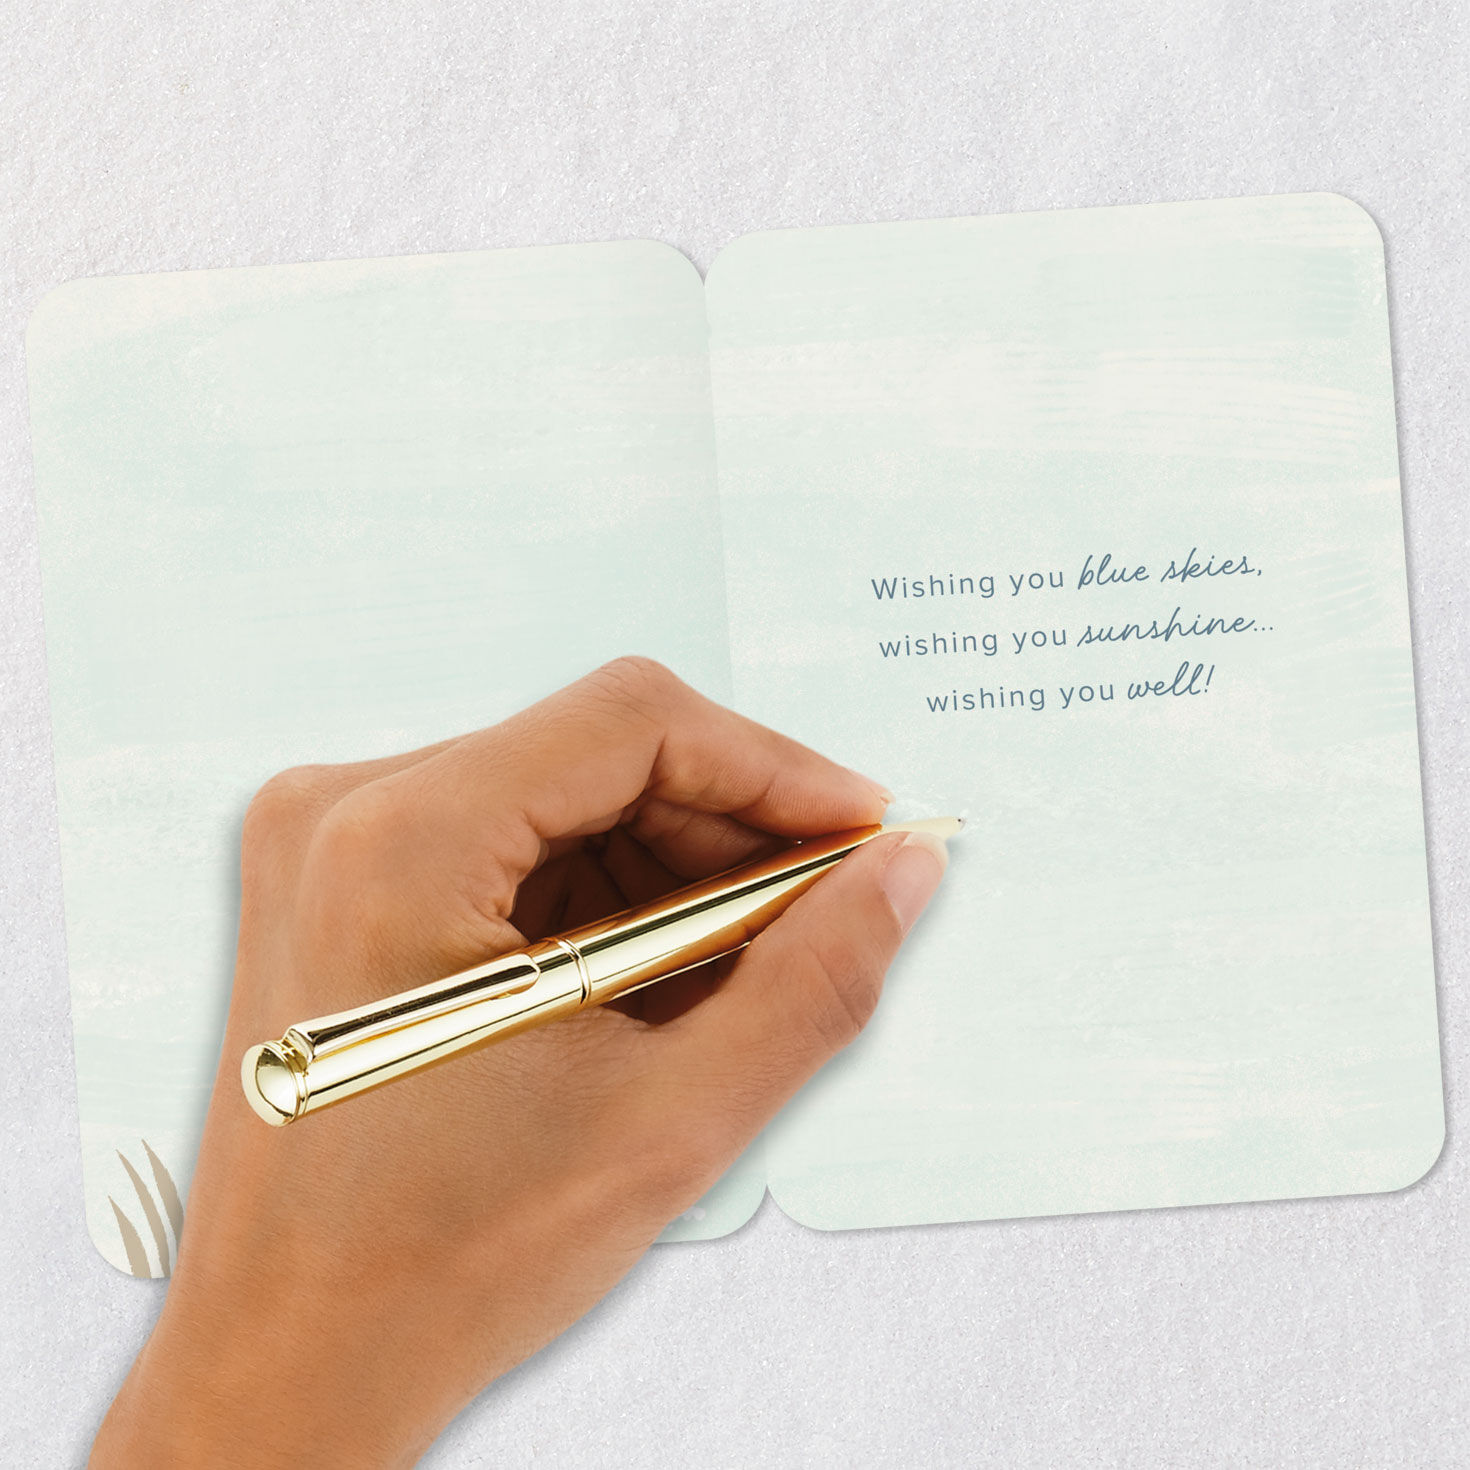 Wishing you blue skies,
wishing you sunshine...
wishing you well!